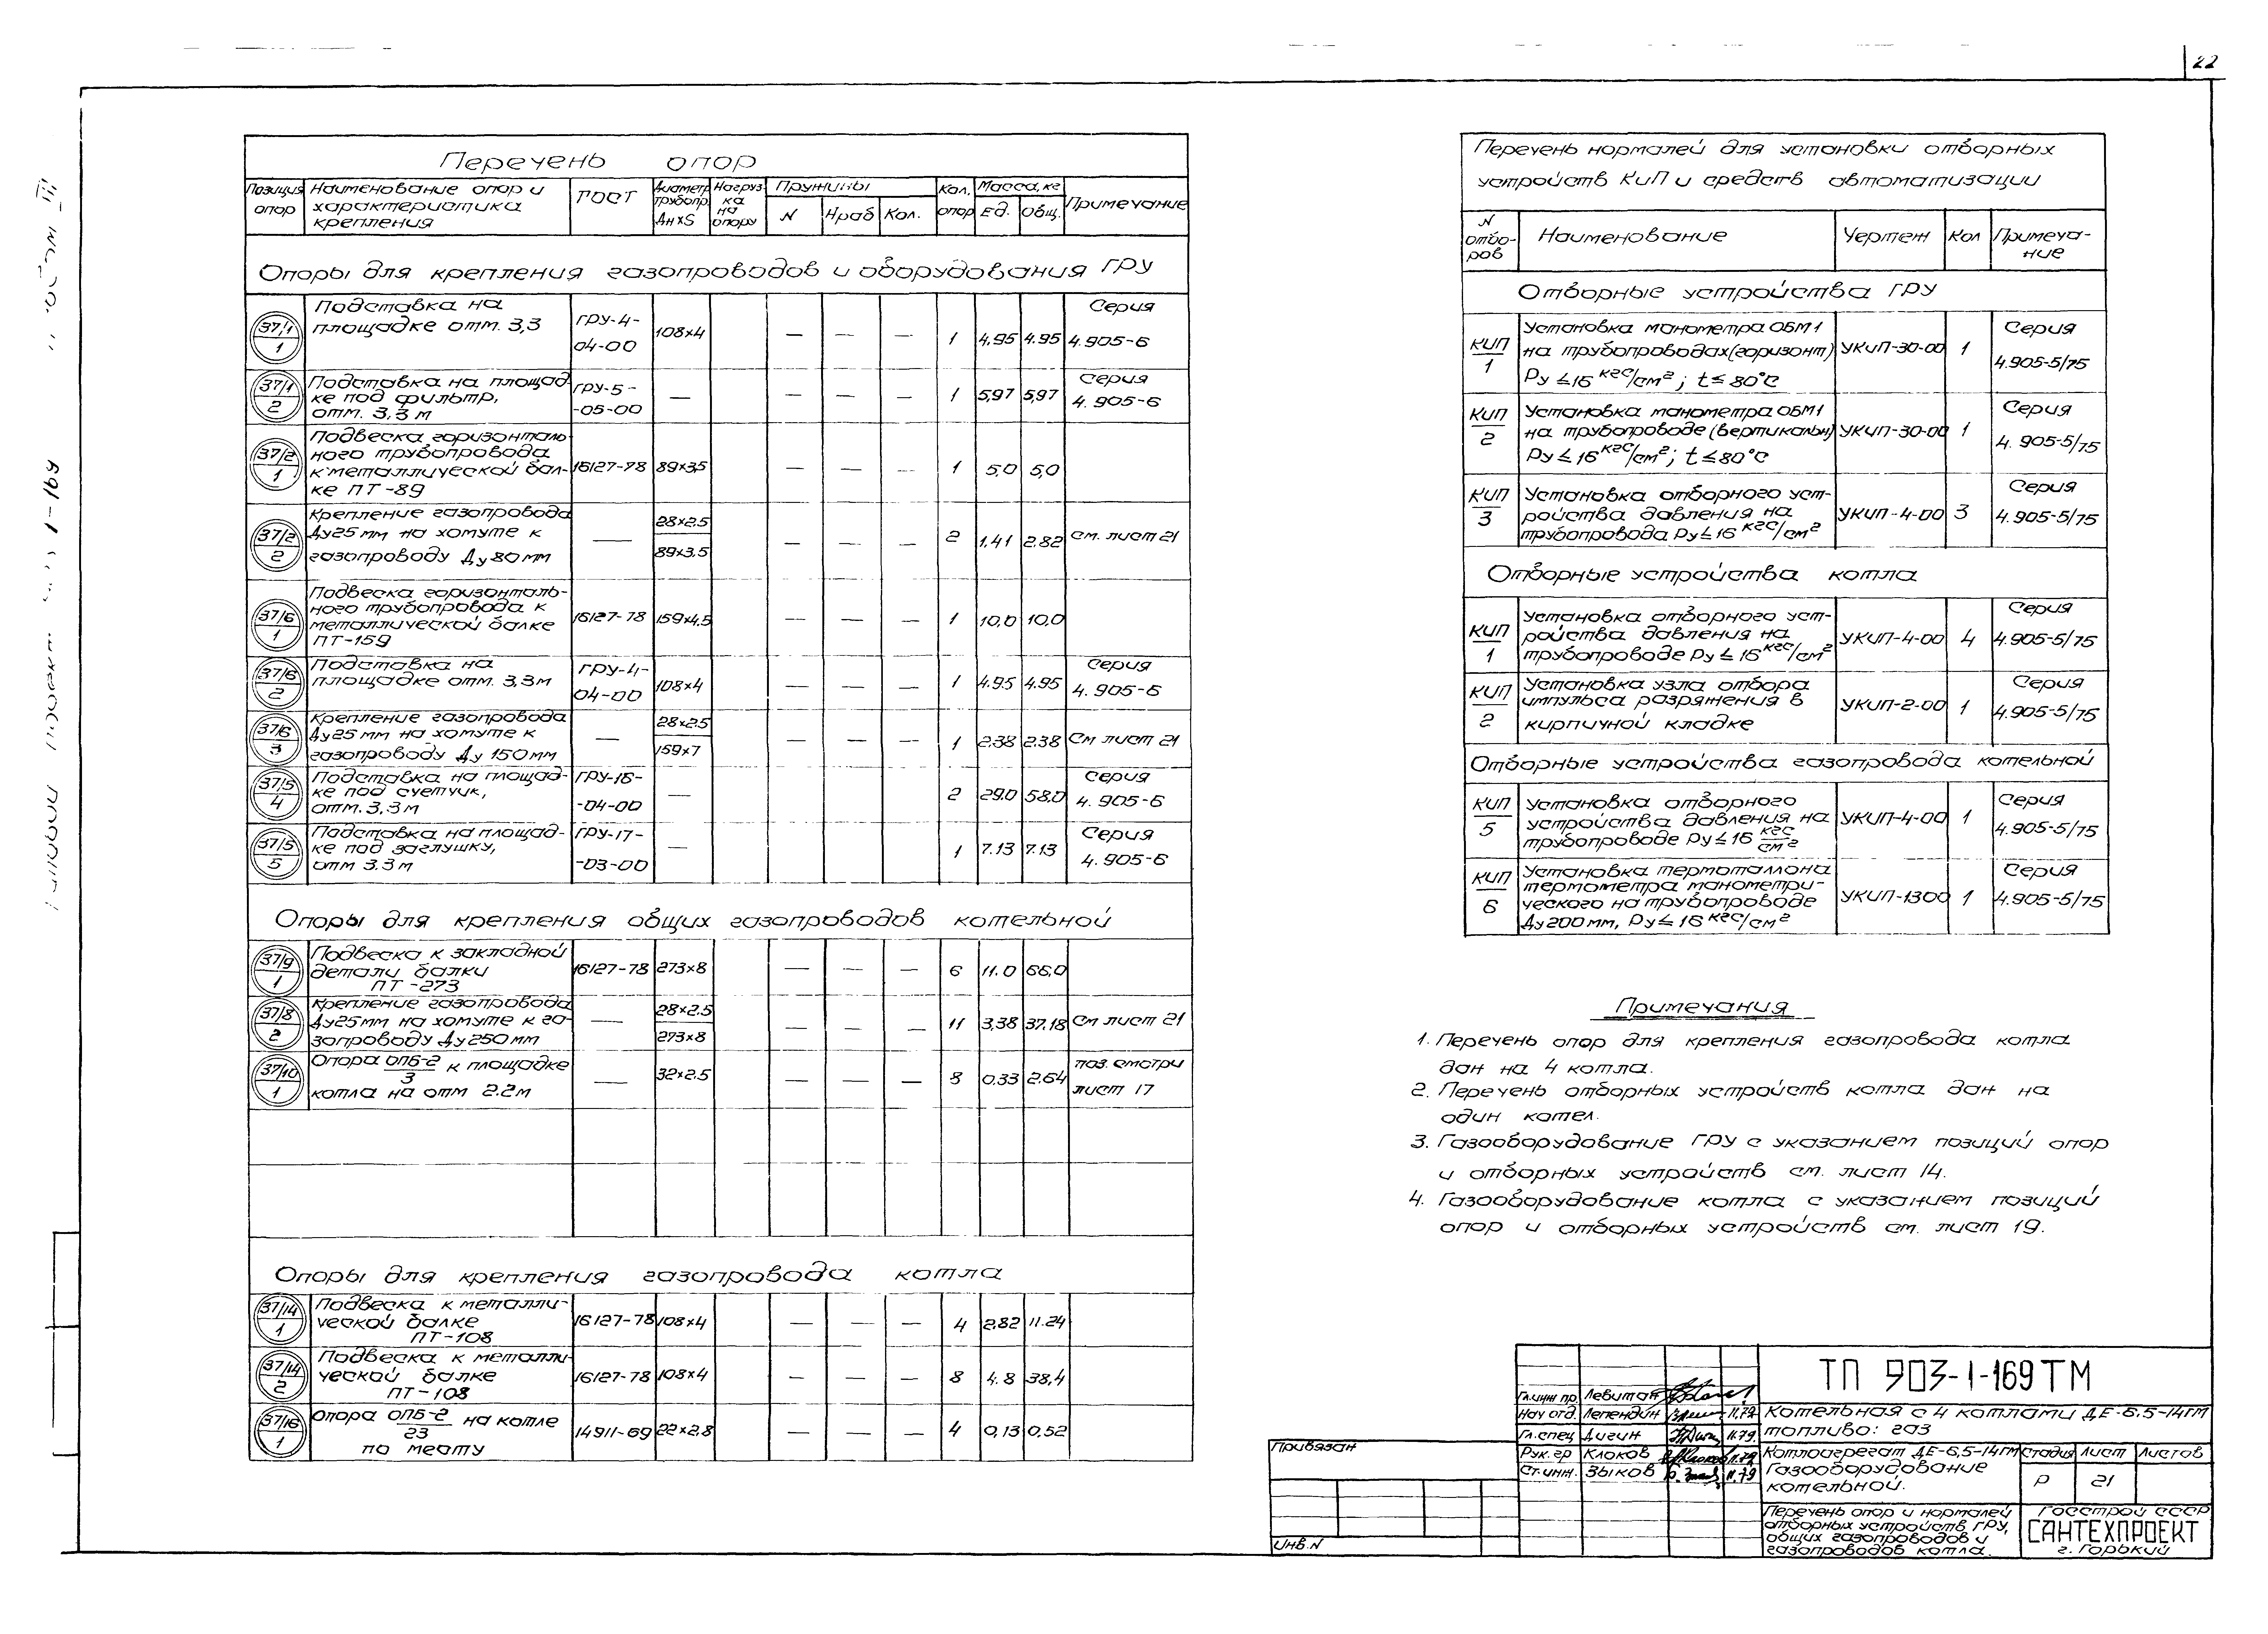 22
Перечень опор
Позиция опор | Наименование опор и характеристика крепления | ГОСТ | Диаметр трубопр. Дн×S | Нагрузка на опору | Пружины | N | Hраб | Кол. | Кол. опор | Масса, кг | Ед. | Общ. | Примечание
Опоры для крепления газопроводов и оборудования ГРУ
37/1 1 | Подставка на площадке отм. 3,3 | ГРУ-4-04-00 | 108×4 | — | — | — | 1 | 4.95 | 4.95 | Серия 4.905-6
37/1 2 | Подставка на площадке под фильтр, отм. 3,3 м | ГРУ-5--05-00 | — | — | — | — | 1 | 5,97 | 5,97 | Серия 4.905-6
37/2 1 | Подвеска горизонтального трубопровода к металлической балке ПТ-89 | 16127-78 | 89×3,5 | — | — | — | 1 | 5,0 | 5,0
37/2 2 | Крепление газопровода Ду25мм на хомуте к газопроводу Ду 80мм | — | 28×2.5 89×3.5 | — | — | — | 2 | 1.41 | 2.82 | См. лист 21
37/6 1 | Подвеска горизонтального трубопровода к металлической балке ПТ-159 | 16127-78 | 159×4.5 | — | — | — | 1 | 10,0 | 10,0
37/6 2 | Подставка на площадке отм. 3,3м | ГРУ-4-04-00 | 108×4 | — | — | — | 1 | 4.95 | 4.95 | Серия 4.905-6
37/6 3 | Крепление газопровода Ду25мм на хомуте к газопроводу Ду 150мм | — | 28×2.5 159×7 | — | — | — | 1 | 2.38 | 2.38 | См лист 21
37/5 4 | Подставка на площадке под счетчик, отм. 3,3м | ГРУ-16--04-00 | — | 2 | 29.0 | 58.0 | Серия 4.905-6
37/5 5 | Подставка на площадке под заглушку, отм 3.3м | ГРУ-17--03-00 | — | 1 | 7.13 | 7.13 | Серия 4.905-6
Опоры для крепления общих газопроводов котельной
37/9 1 | Подвеска к закладной детали балки ПТ-273 | 16127-78 | 273×8 | — | — | — | 6 | 11.0 | 66,0
37/8 2 | Крепление газопровода Ду25мм на хомуте к газопроводу Ду250мм | — | 28×2.5 273×8 | — | — | — | 11 | 3,38 | 37.18 | См лист 21
37/10 1 | Опора ОПБ-2/3 к площадке котла на отм 2.2м | — | 32×2.5 | — | — | — | 8 | 0.33 | 2.64 | поз. смотри лист 17
Опоры для крепления газопровода котла
37/14 1 | Подвеска к металлической балке ПТ-108 | 16127-78 | 108×4 | — | — | — | 4 | 2.82 | 11.24
37/14 2 | Подвеска к металлической балке ПТ-108 | 16127-78 | 108×4 | — | — | — | 8 | 4.8 | 38,4
37/16 1 | Опора ОПБ-2/23 на котле по месту | 14911-69 | 22×2.8 | — | — | — | 4 | 0,13 | 0,52
Перечень нормалей для установки отборных
устройств КиП и средств автоматизации
N отборов | Наименование | Чертеж | Кол | Примечание
Отборные устройства ГРУ
КИП 1 | Установка манометра ОБМ1 на трубопроводах (горизонт) Ру ≤16 кгс/см²; t≤80°C | УКиП-30-00 | 1 | Серия 4.905-5/75
КИП 2 | Установка манометра ОБМ1 на трубопроводе (вертикальн) Ру ≤16 кгс/см²; t≤80°C | УКиП-30-00 | 1 | Серия 4.905-5/75
КИП 3 | Установка отборного устройства давления на трубопровода Ру ≤16 кгс/см² | УКИП-4-00 | 3 | Серия 4.905-5/75
Отборные устройства котла
КИП 1 | Установка отборного устройства давления на трубопроводе Ру ≤ 16 кгс/см² | УКИП-4-00 | 4 | Серия 4.905-5/75
КИП 2 | Установка узла отбора импульса разряжения в кирпичной кладке | УКИП-2-00 | 1 | Серия 4.905-5/75
Отборные устройства газопровода котельной
КИП 5 | Установка отборного устройства давления на трубопроводе Ру ≤16 кгс/см² | УКИП-4-00 | 1 | Серия 4.905-5/75
КИП 6 | Установка термоталлона термометра манометрического на трубопроводе Ду200мм, Ру ≤ 16 кгс/см² | УКИП-1300 | 1 | Серия 4.905-5/75
Примечания
1. Перечень опор для крепления газопровода котла
дан на 4 котла.
2. Перечень отборных устройств котла дан на
один котел.
3. Газооборудование ГРУ с указанием позиций опор
и отборных устройств см. лист 14.
4. Газооборудование котла с указанием позиций
опор и отборных устройств см. лист 19.
ТП 903-1-169 ТМ
Гл.инж.пр. Левитан
Нач отд. Лепендин 11.79
Гл.спец Дигин 11.79
Рук.гр Клоков 11.79
Ст.инж. Зыков 11.79
Котельная с 4 котлами ДЕ-6,5-14ГМ
топливо: газ
Котлоагрегат ДЕ-6,5-14ГМ
Газооборудование
котельной.
Стадия Лист Листов
Р 21
Перечень опор и нормалей
отборных устройств ГРУ,
общих газопроводов и
газопроводов котла.
Госстрой СССР
САНТЕХПРОЕКТ
г. Горький
Привязан
Инв.N